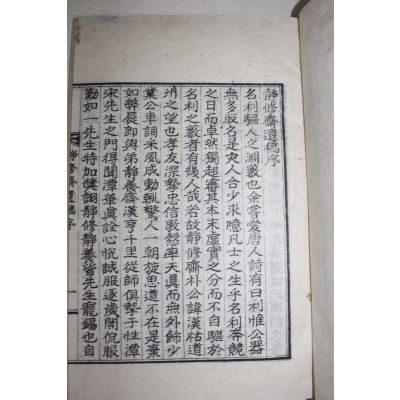 靜修齋遺稿序
名利驅人之淵藪也余嘗愛唐人詩有曰利惟公器
無多取名是灾人合少求噫凡士之生乎名利奔競
之日而卓然獨超審其本末虛實之分而不自驅於
名利之藪者有幾人哉若故靜修齋朴公諱漢枯道
州之望也孝友深摯忠信敦慤率天眞而無外飾少
業公車詞采風成動輒驚人一朝旋思道不在是棄
如弊屣即與弟靜養齋漢亨千里從師俱摯子性潭
宋先生之門得聞潭華眞詮心恱誠服逐歲開侃服
勤如一先生特加奬詡靜修靜養皆先生寵錫也自
靜修齋遺稿序
一